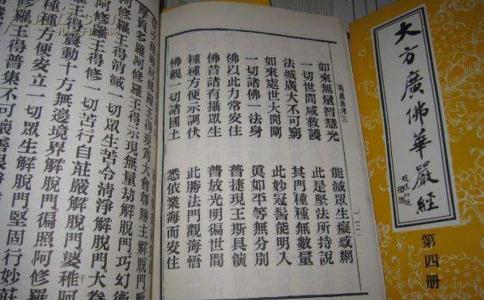 大方廣佛華嚴經
第四册
如來無量智慧光　能滅眾生癡惑網
一切世間咸救護　此是堅法所持說
法城廣大不可窮　其門種種無數量
如來處世大開闡　此妙冠髻能明入
一切諸佛一法身　真如平等無分別
佛以此力常安住　普捷現王斯具演
佛昔諸有攝眾生　普放光明徧世間
種種方便示調伏　此勝法門觀海悟
佛觀一切諸國土　悉依業海而安住
羅阿修羅王得現為大會尊勝主解脫門
阿修羅王得示現無量劫解脫門巧幻術
修羅王得消滅一切眾生苦令清淨解脫門大眷
羅王得修一切苦行自莊嚴解脫門婆稚阿
王得震動十方無邊境界解脫門徧照阿修羅
種種方便安立一切眾生解脫門堅固行妙莊
羅王得普集不可壞善根